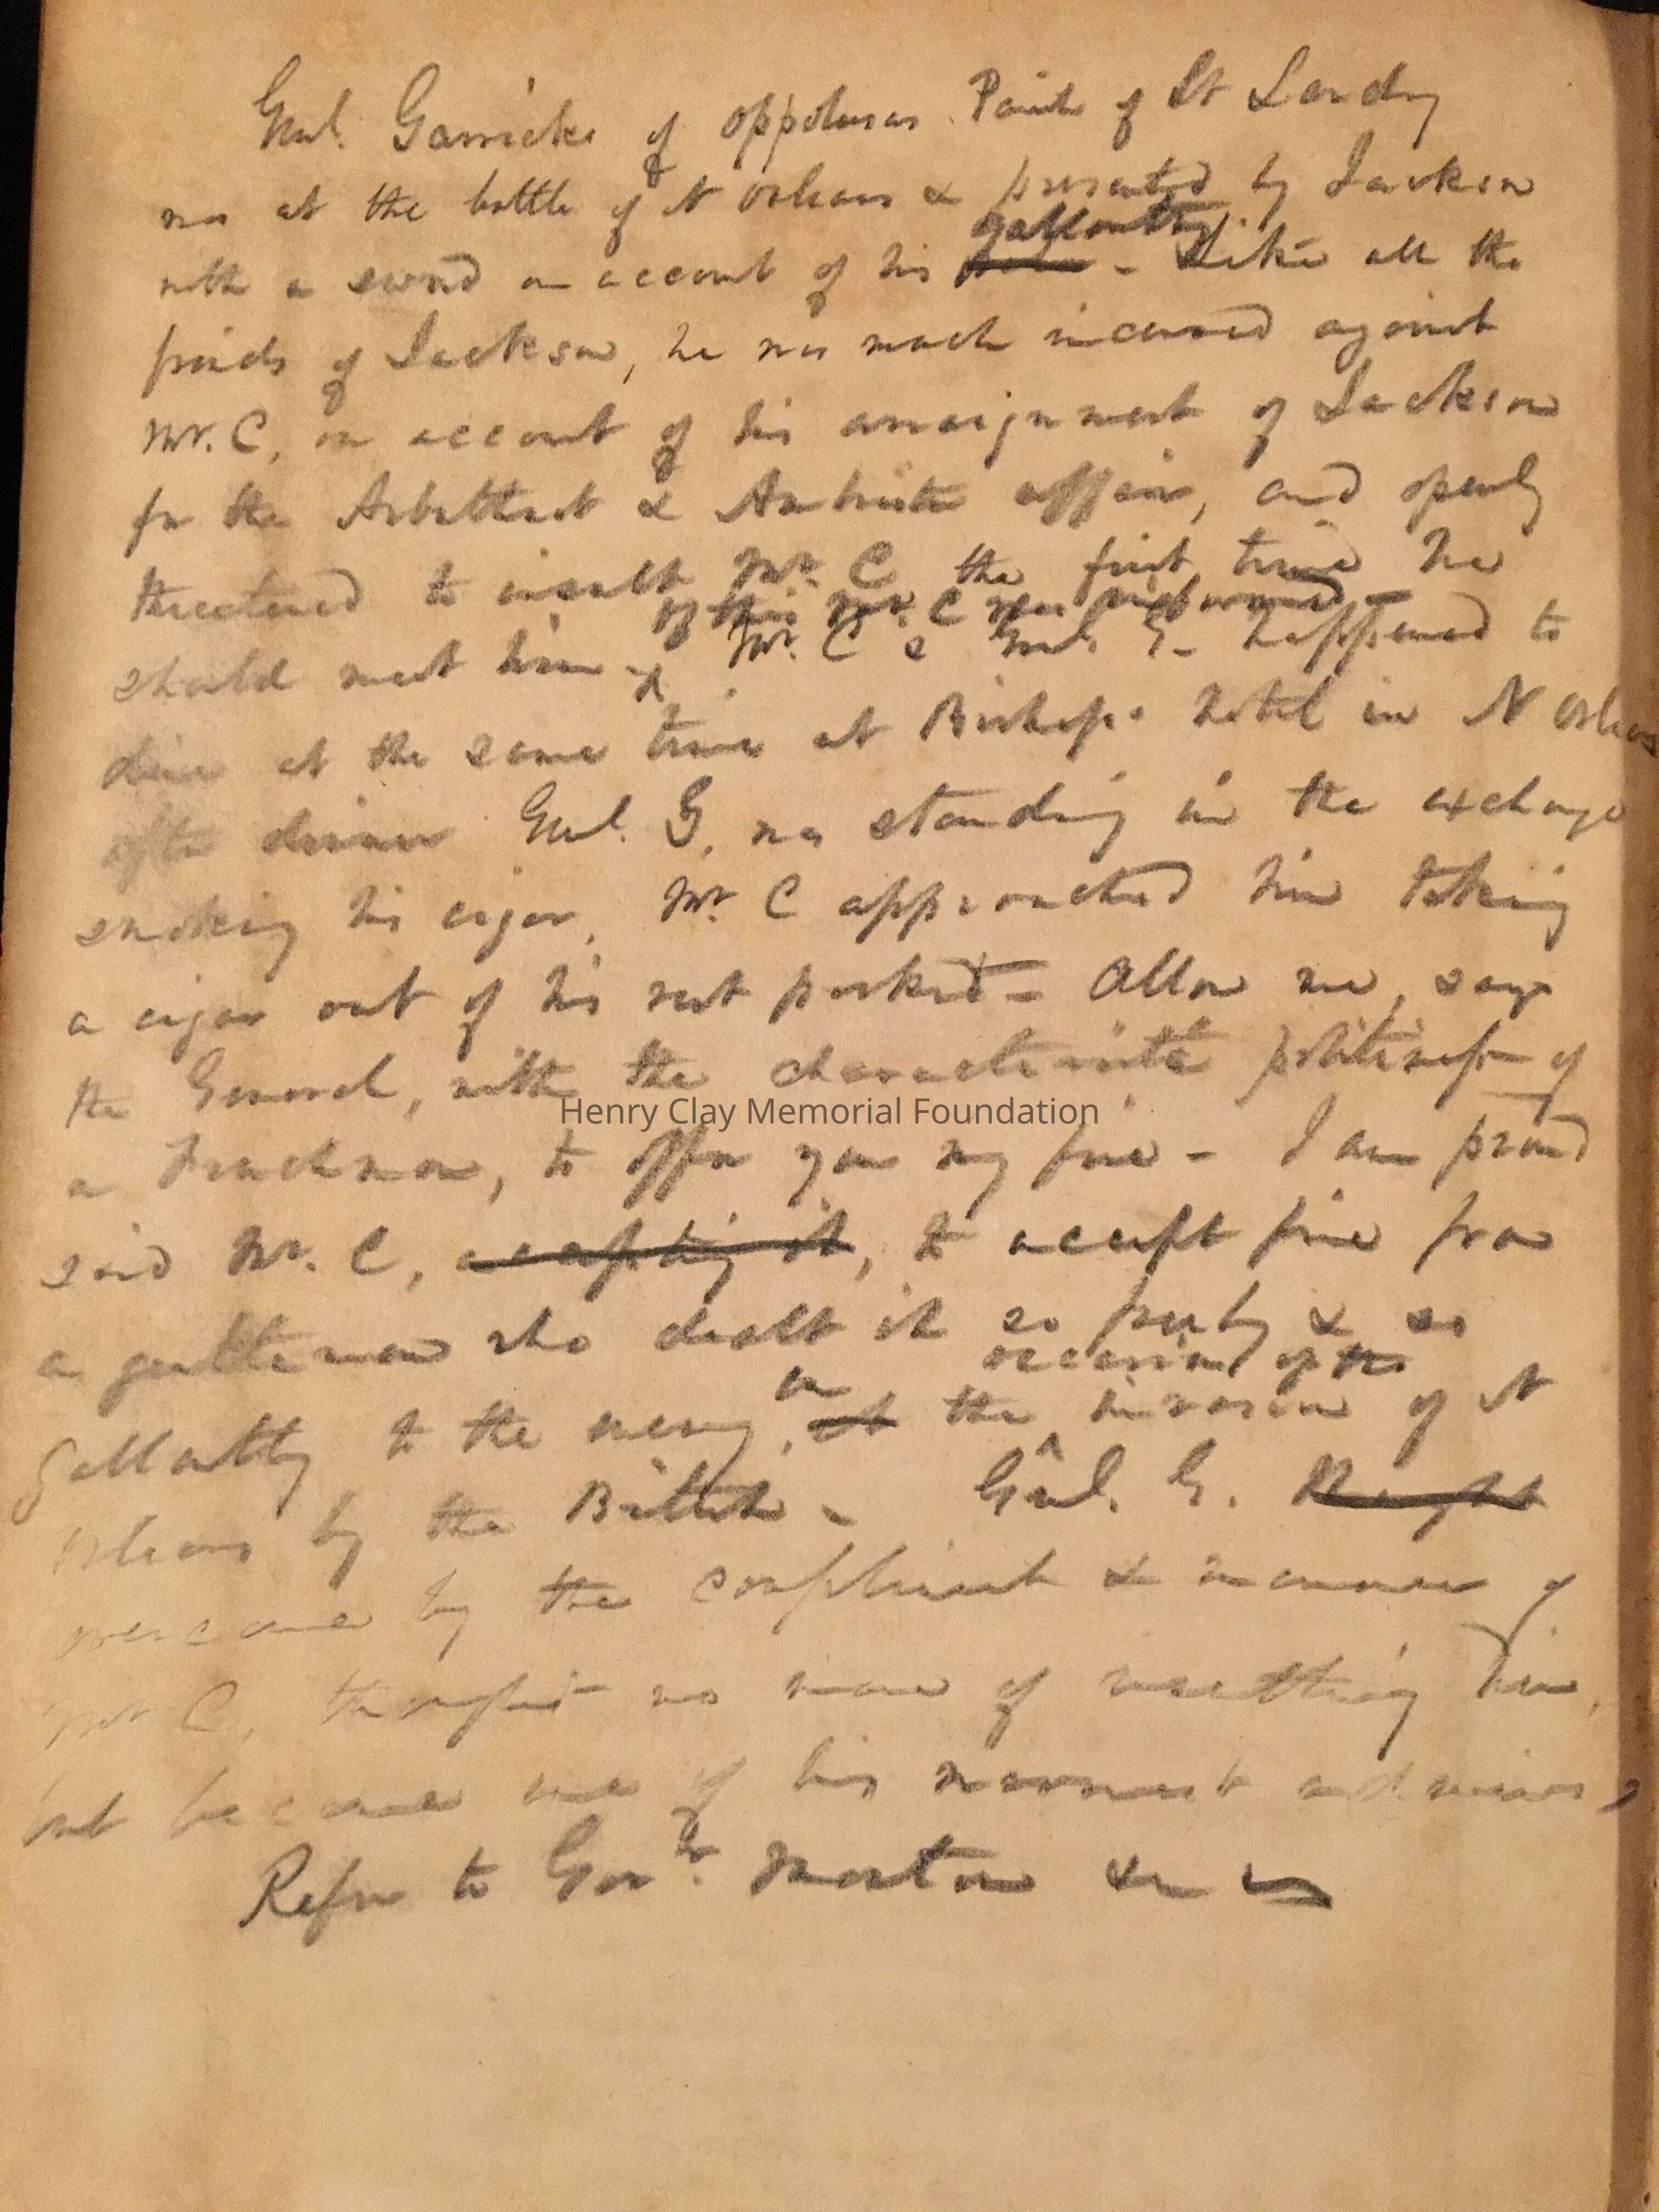 Genl. Garricks of Oppelousas Parish of St Landry
was at the battle of N Orleans & presented by Jackson
gallantry
with a sword on account of his - Like all the
friends of Jackson, he was much incensed against
Mr. C, on account of his arraignment of Jackson
for the Arbuthnot & Ambrista affair, and openly
threatened to insult Mr. C the first time he
of this Mr. C was informed -
should meet him x Mr. C & Genl G- happened to
dine at the same time at Bishop's hotel in N Orleans
after dinner Genl. G, was standing in the exchange
smoking his cigar, Mr. C approached him taking
a cigar out of his vest pocket - Allow me, says
the General, with the characteristic politeness of
Henry Clay Memorial Foundation
a Frenchman, to offer you my fire - I am proud
said Mr. C, accepting it, to accept fire from
a gentleman who dealt it so freely & so
on occasion of the
gallantly to the enemy, at the invasion of N
Orleans by the British - Genl. G.
overcame by the compliment & manner of
Mr C, thought no more of insulting him,
but became one of his warmest admirers,
Refer to Govr. Morton &c